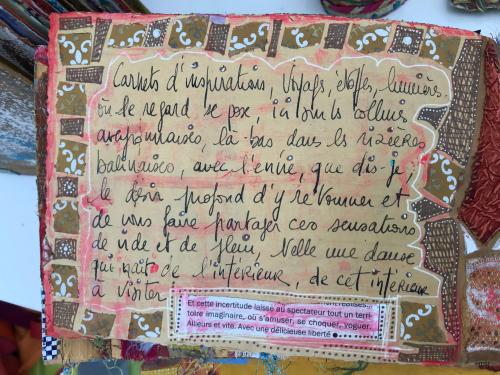 Carnets d'inspirations, Voyages, étoffes, lumières
où le regard se pose, ici sur les collines
avaponnaises, là-bas dans les rizières
balinaises, avec l'envie, que dis-je,
le désir profond d'y retourner et
de vous faire partager ces sensations
de vide et de plein. Telle une danse
qui naît de l'intérieur, de cet intérieur
à visiter
Et cette incertitude laisse au spectateur tout un terri
toire imaginaire, où s'amuser, se choquer, voguer.
Ailleurs et vite. Avec une délicieuse liberté